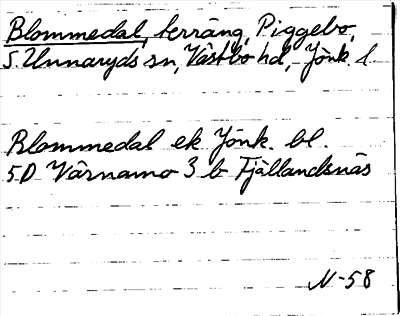 Blommedal, terräng, Piggebo,
S. Unnaryds sn, Västbo hd, Jönk. l.
Blommedal ek Jönk. bl.
5D Värnamo 3 b Fjällandsnäs
N-58